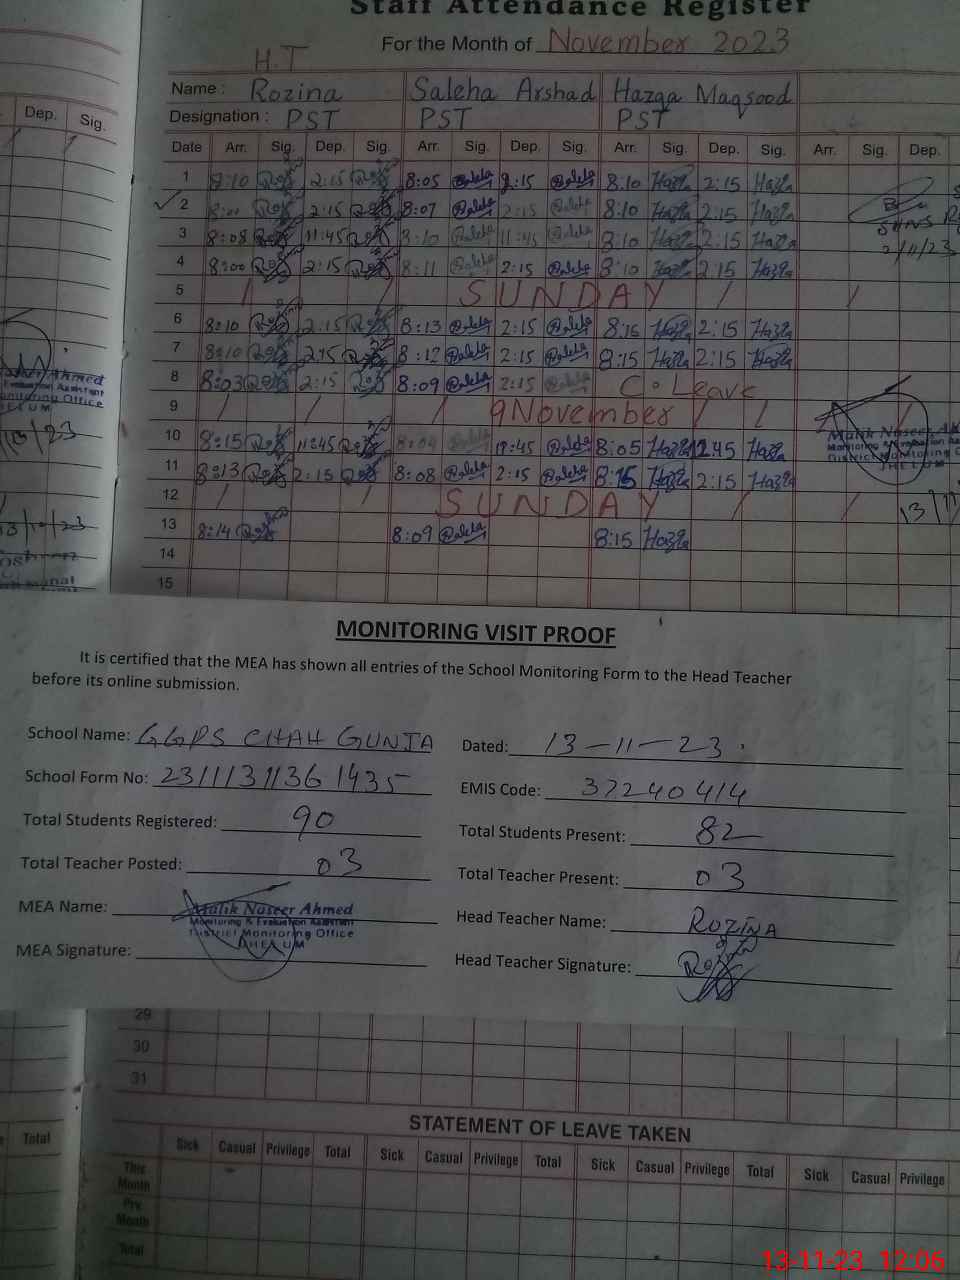 Staff Attendance Register
For the Month of November 2023
H.T
Name : Rozina Saleha Arshad Hazqa Maqsood
Designation : PST PST PST
Dep. Sig.
Date Arr. Sig. Dep. Sig. Arr. Sig. Dep. Sig. Arr. Sig. Dep. Sig. Arr. Sig. Dep.
1 8:10 2:15 8:05 Saleha 2:15 Saleha 8:10 Hazqa 2:15 Hazqa
2 2:15 8:07 Saleha 2:15 Saleha 8:10 Hazqa 2:15 Hazqa
3 8:08 11:45 8:10 Saleha 11:45 Saleha 8:10 Hazqa 2:15 Hazqa
2/11/23
4 8:00 2:15 8:11 Saleha 2:15 Saleha 8:10 Hazqa 2:15 Hazqa
5 SUNDAY
6 8:10 2:15 8:13 Saleha 2:15 Saleha 8:15 Hazqa 2:15 Hazqa
7 8:10 2:15 8:12 Saleha 2:15 Saleha 8:15 Hazqa 2:15 Hazqa
8 8:03 2:15 8:09 Saleha 2:15 Saleha C. Leave
9 9 November
10 8:15 11:45 Saleha 12:45 Saleha 8:05 Hazqa 12:45 Hazqa
11 8:13 2:15 8:08 Saleha 2:15 Saleha 8:15 Hazqa 2:15 Hazqa
12 SUNDAY
13 8:14 8:09 Saleha 8:15 Hazqa
14
15
Ahmed
Evaluation Assistant
Monitoring Office
JHELUM
Malik Naseer
Monitoring & Evaluation
District Monitoring
JHELUM
13/11
MONITORING VISIT PROOF
It is certified that the MEA has shown all entries of the School Monitoring Form to the Head Teacher
before its online submission.
School Name: GGPS CHAH GUNJA Dated: 13-11-23
School Form No: 23111311361435 EMIS Code: 37240414
Total Students Registered: 90 Total Students Present: 82
Total Teacher Posted: 03 Total Teacher Present: 03
MEA Name: Malik Naseer Ahmed Head Teacher Name: ROZINA
Monitoring & Evaluation Assistant
District Monitoring Office
JHELUM
MEA Signature: Head Teacher Signature:
29
30
31
STATEMENT OF LEAVE TAKEN
Total
Sick Casual Privilege Total Sick Casual Privilege Total Sick Casual Privilege Total Sick Casual Privilege
This Month
Prv Month
Total
13-11-23 12:06